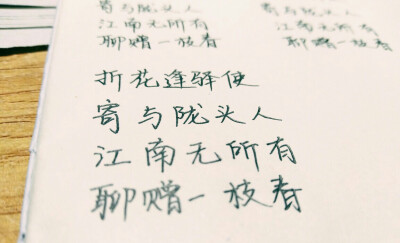 寄与陇头人
江南无所有
聊赠一枝春
寄与陇头人
江南无所有
聊赠一枝春
折花逢驿使
寄与陇头人
江南无所有
聊赠一枝春